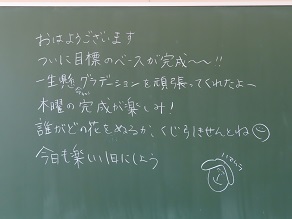 おはようございます
ついに目標のベースが完成〜〜!!
一生懸命グラデーションを頑張ってくれたよー
木曜の完成が楽しみ!
誰がどの花をぬるか、くじ引きせんとね
今日も楽しい1日にしよう